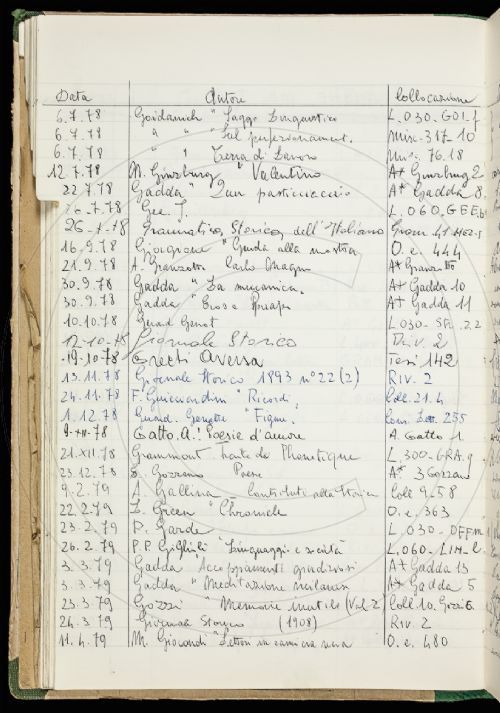 Data Autore Collocazione
6.7.78 Goidanich "Saggi Linguistici L.030.GOI.f
6.7.78 " " "Sul perfezionament. Misc. 317_10
6.7.78 " " Terra di Lavoro Mis. 76.18
12.7.78 N. Ginzburg "Valentino A* Ginzburg 2
22.7.78 Gadda "Quer pasticciaccio A* Gadda 8.
.7.78 Gee J. L.060.GEE
26-7-78 Grammatica Storica dell'Italiano Gram.
16-9.78 "Guida alla mostra O.e. 444
21.9.78 A. Carlo Magno A*
30.9.78 Gadda "La meccanica. A* Gadda 10
30.9.78 Gadda "Eros e Priapo A* Gadda 11
10.10.78 Gerard Genot L030-Str.22
12-10-78 Giornale Storico Riv. 2
-19-10-78 Grechi Aversa Tesi 142
13.11.78 Giornale Storico 1893 n°22 (2) RIV. 2
24.11.78 F. Guicciardini "Ricordi, Coll. 21.4
1.12.78 Gerard. Genette "Figure. 255
9-XII-78 Gatto A.: Poesie d'amore A. Gatto 1
21.XII.78 Grammont Traité de Phonétique L.300-GRA.
23.12.78 G. Gozzano Poesie A* 3 Gozzano
9.2.79 A. Gallina Contributi alla Storia Coll 9-58
22.2.79 Green "Chronicle O.e. 363
23.2.79 P. Garde L.030-
26.2.79 P.P. Giglioli "Linguaggio e società L.060-LIN.
3.3.79 Gadda Accoppiamenti giudiziosi A* Gadda 13
3.3.79 Gadda "Meditazione milanese A* Gadda 5
23.3.79 Gozzi "Memorie inutili (Vol. 2 Coll. 10. Gozzi
24.3.79 Giornale Storico (1908) Riv. 2
11.4.79 M. Giocondi "Lettori in camicia nera O.e. 480